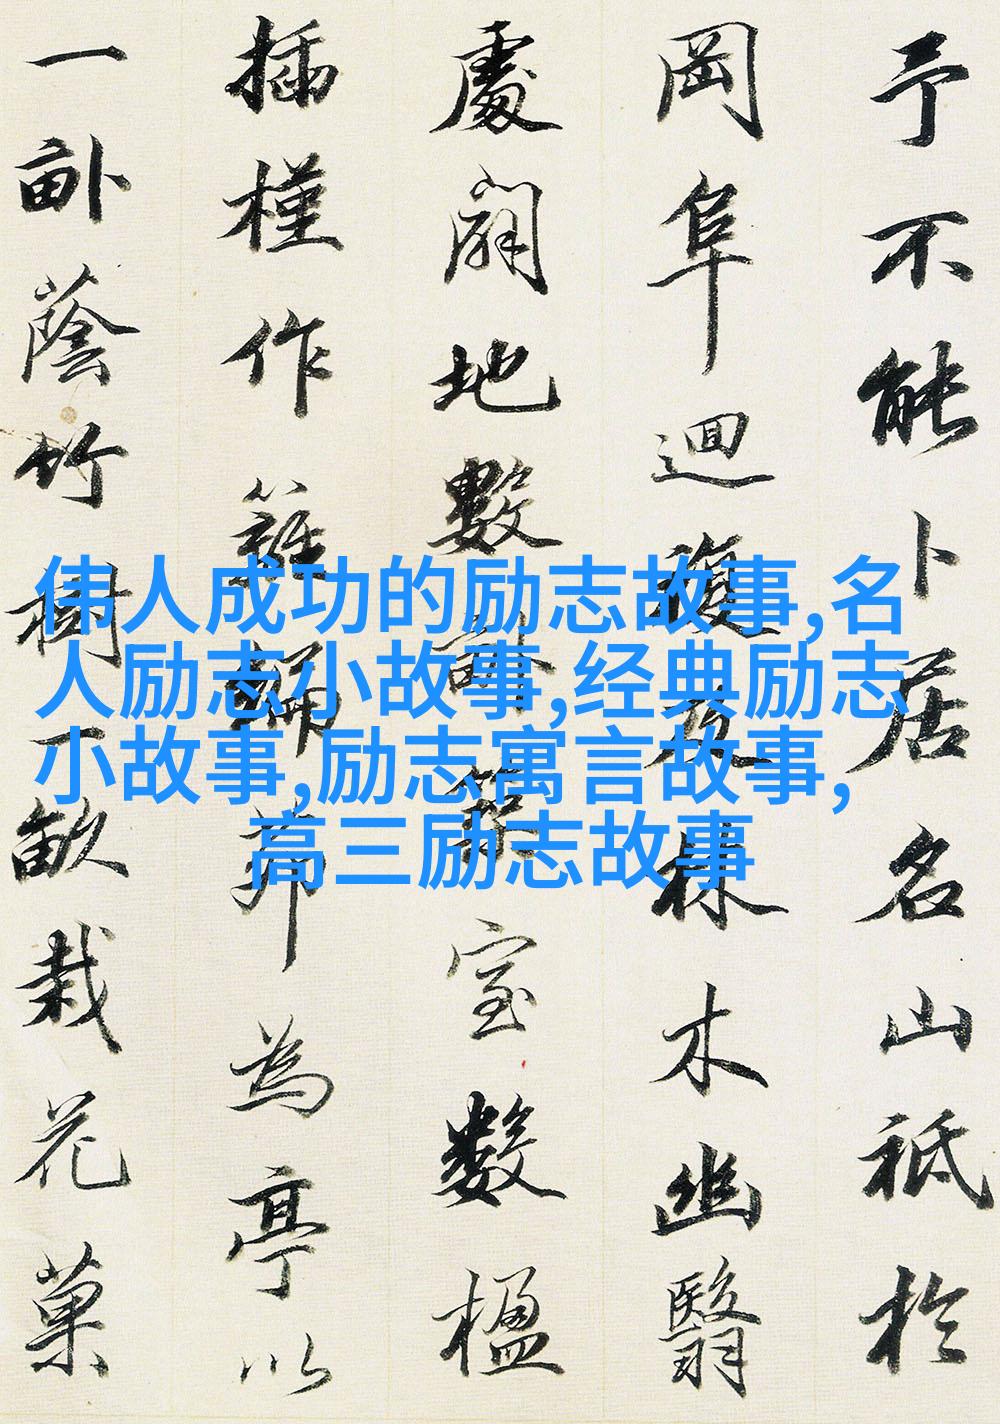 予不能卜居名山祗於
岡阜迴複及林木幽翳
處闢地數畝築室數楹
插槿作籬編茆為亭以
一畝蔭竹樹一畝栽花菓
伟人成功的励志故事,名
人励志小故事,经典励志
小故事,励志寓言故事,
高三励志故事